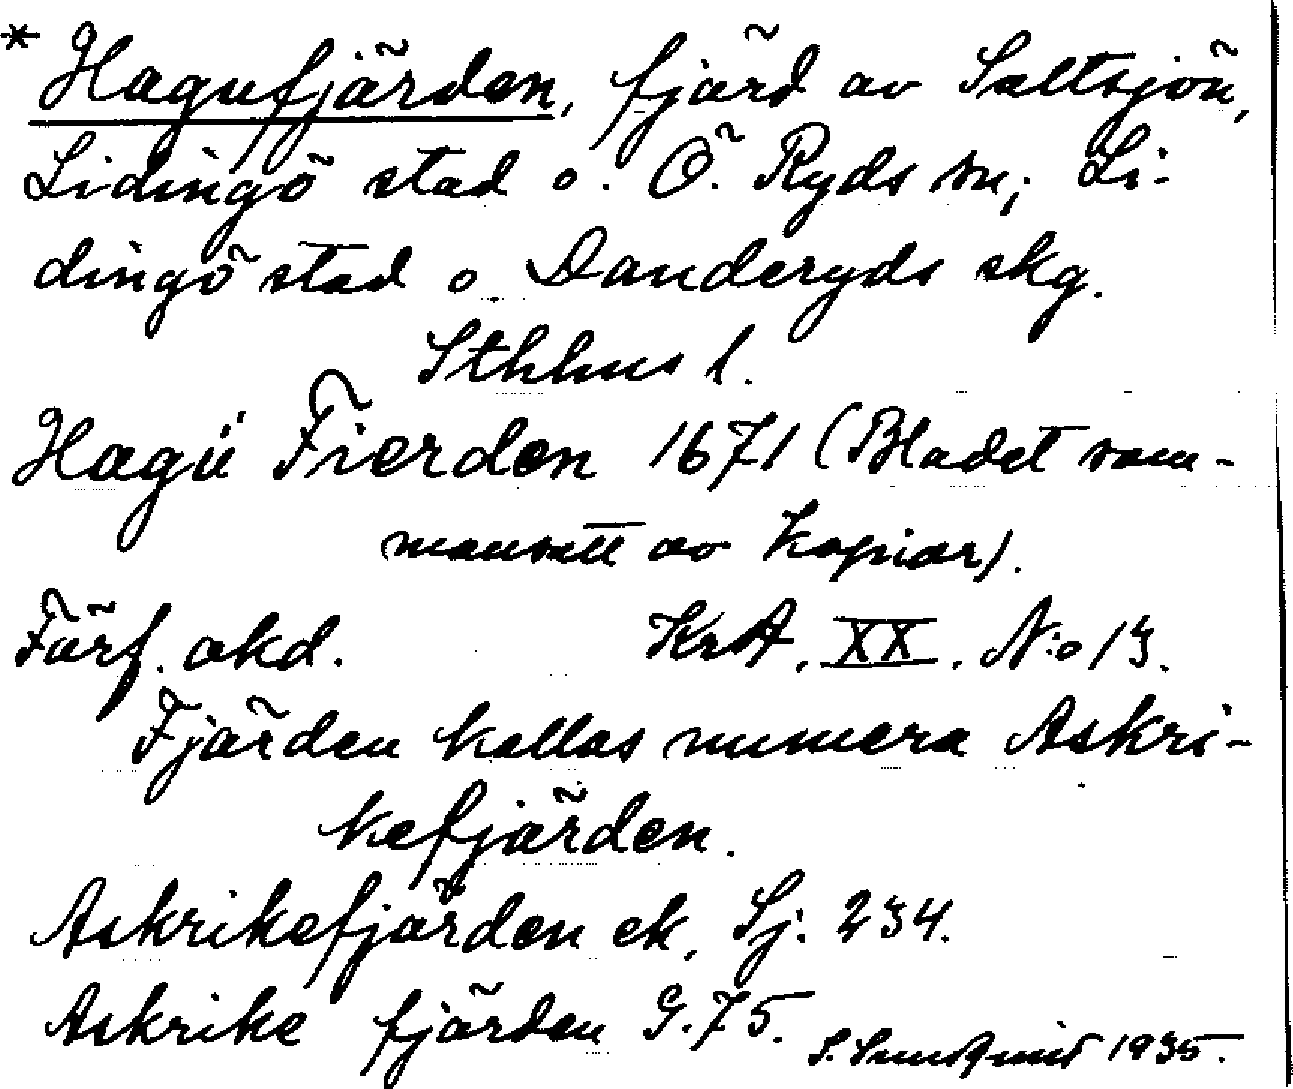 * Hagufjärden, fjärd av Saltsjön,
Lidingö stad o. Ö. Ryds sn; Li-
dingö stad o Danderyds skg.
Sthlms l.
Hagü Fierden 1671 (Bladet sam-
mansatt av kopiar).
Förf. okd. KrA. XX. N:o 13.
Fjärden kallas numera Askri-
kefjärden.
Askrikefjärden ek. Sj. 234.
Askrike fjärden G. 75.
S. Sundqvist 1935.